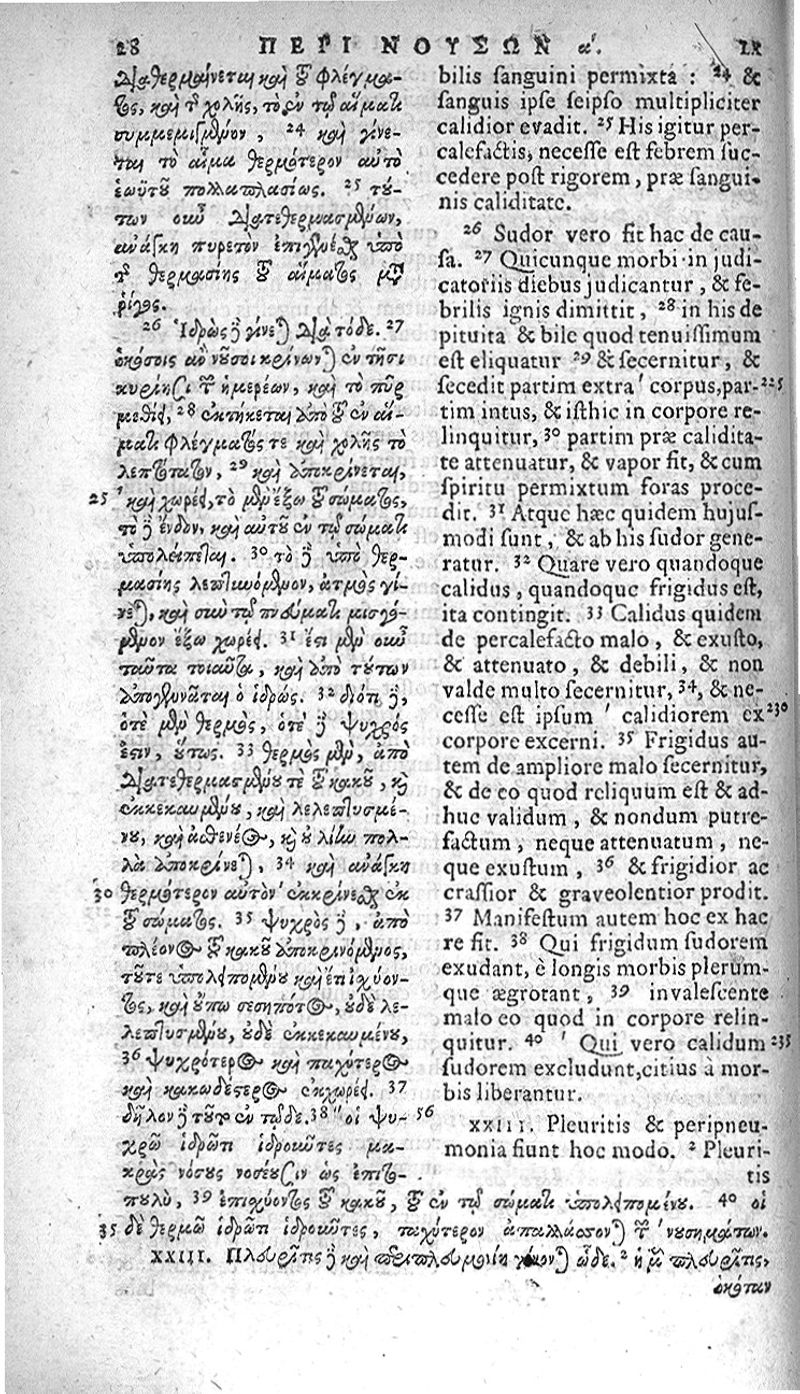 28 ΠΕΡΙ ΝΟΥΣΩΝ α΄.
διαθερμαίνεται καὶ τοῦ φλέγμα-
τος, καὶ τῆς χολῆς, τὸ ἐν τῷ αἵματι
συμμεμιγμένον, 24 καὶ γίνε-
ται τὸ αἷμα θερμότερον αὐτὸ
ἑωϋτοῦ πολλαπλασίως. 25 τού-
των οὖν διατεθερμασμένων,
ἀνάγκη πυρετὸν ἐπιγενέσθαι ὑπὸ
τῆς θερμασίης τοῦ αἵματος μετὰ
ῥῖγος.
26 Ἱδρὼς δὲ γίνεται διὰ τόδε. 27
ὁκόσοις ἂν νοῦσοι κρίνωνται ἐν τῇσι
κυρίῃσι τῶν ἡμερέων, καὶ τὸ πῦρ
μεθίῃ, 28 ἐκτήκεται ἀπὸ τοῦ ἐν αἵ-
ματι φλέγματός τε καὶ χολῆς τὸ
λεπτότατον, 29 καὶ ἀποκρίνεται,
25 ' καὶ χωρέει, τὸ μὲν ἔξω τοῦ σώματος,
τὸ δὲ ἔνδον, καὶ αὐτοῦ ἐν τῷ σώματι
ὑπολείπεται. 30 τὸ δὲ ὑπὸ θερ-
μασίης λεπτυνόμενον, ἀτμὸς γί-
νεται, καὶ σὺν τῷ πνεύματι μισγό-
μενον ἔξω χωρέει. 31 ἔστι μὲν οὖν
ταῦτα τοιαῦτα, καὶ ἀπὸ τούτων
ἀπογεννᾶται ὁ ἱδρώς. 32 διότι δὲ,
ὁτὲ μὲν θερμὸς, ὁτὲ δὲ ψυχρός
ἐστιν, οὕτως. 33 θερμὸς μὲν, ἀπὸ
διατεθερμασμένου τε τοῦ κακοῦ, καὶ
ἐκκεκαυμένου, καὶ λελεπτυσμέ-
νου, καὶ ἀσθενέος, καὶ οὐ λίην πολ-
λὰ ἀποκρίνεται, 34 καὶ ἀνάγκη
30 θερμότερον αὐτὸν ' ἐκκρίνεσθαι ἐκ
τοῦ σώματος. 35 ψυχρὸς δὲ, ἀπὸ
πλέονος τοῦ κακοῦ ἀποκρινόμενος,
τοῦτε ὑπολειπομένου καὶ ἔτι ἰσχύον-
τος, καὶ οὔπω σεσηπότος, οὐδὲ λε-
λεπτυσμένου, οὐδὲ ἐκκεκαυμένου,
36 ψυχρότερος καὶ παχύτερος
καὶ κακωδέστερος ἐκχωρέει. 37
δῆλον δὲ τοῦτο ἐν τῷδε. 38 " οἱ ψυ- 56
χρῷ ἱδρῶτι ἱδροῦντες μα-
κρὰς νόσους νοσέουσιν ὡς ἐπιτο-
bilis sanguini permixta : 24 &
sanguis ipse seipso multipliciter
calidior evadit. 25 His igitur per-
calefactis, necesse est febrem suc-
cedere post rigorem, præ sangui-
nis caliditate.
26 Sudor vero fit hac de cau-
sa. 27 Quicunque morbi in judi-
catoriis diebus judicantur, & fe-
brilis ignis dimittit, 28 in his de
pituita & bile quod tenuissimum
est eliquatur 29 & secernitur, &
secedit partim extra ' corpus, par- 225
tim intus, & isthic in corpore re-
linquitur, 30 partim præ calidita-
te attenuatur, & vapor fit, & cum
spiritu permixtum foras proce-
dit. 31 Atque hæc quidem hujus-
modi sunt, & ab his sudor gene-
ratur. 32 Quare vero quandoque
calidus, quandoque frigidus est,
ita contingit. 33 Calidus quidem
de percalefacto malo, & exusto,
& attenuato, & debili, & non
valde multo secernitur, 34, & ne-
cesse est ipsum ' calidiorem ex 230
corpore excerni. 35 Frigidus au-
tem de ampliore malo secernitur,
& de eo quod reliquum est & ad-
huc validum, & nondum putre-
factum, neque attenuatum, ne-
que exustum, 36 & frigidior ac
crassior & graveolentior prodit.
37 Manifestum autem hoc ex hac
re fit. 38 Qui frigidum sudorem
exudant, è longis morbis plerum-
que ægrotant, 39 invalescente
malo eo quod in corpore relin-
quitur. 40 ' Qui vero calidum 235
sudorem excludunt, citius à mor-
bis liberantur.
XXIII. Pleuritis & peripneu-
monia fiunt hoc modo. 2 Pleuri-
tis
πολὺ, 39 ἐπισχύοντος τοῦ κακοῦ, τοῦ ἐν τῷ σώματι ὑπολειπομένου. 40 οἱ
35 δὲ θερμῷ ἱδρῶτι ἱδροῦντες, ταχύτερον ἀπαλλάσσονται τῶν νουσημάτων.
XXIII. Πλευρῖτις δὲ καὶ περιπλευμονίη γίνονται ὧδε. 2 ἡ μὲν πλευρῖτις,
ὁκόταν